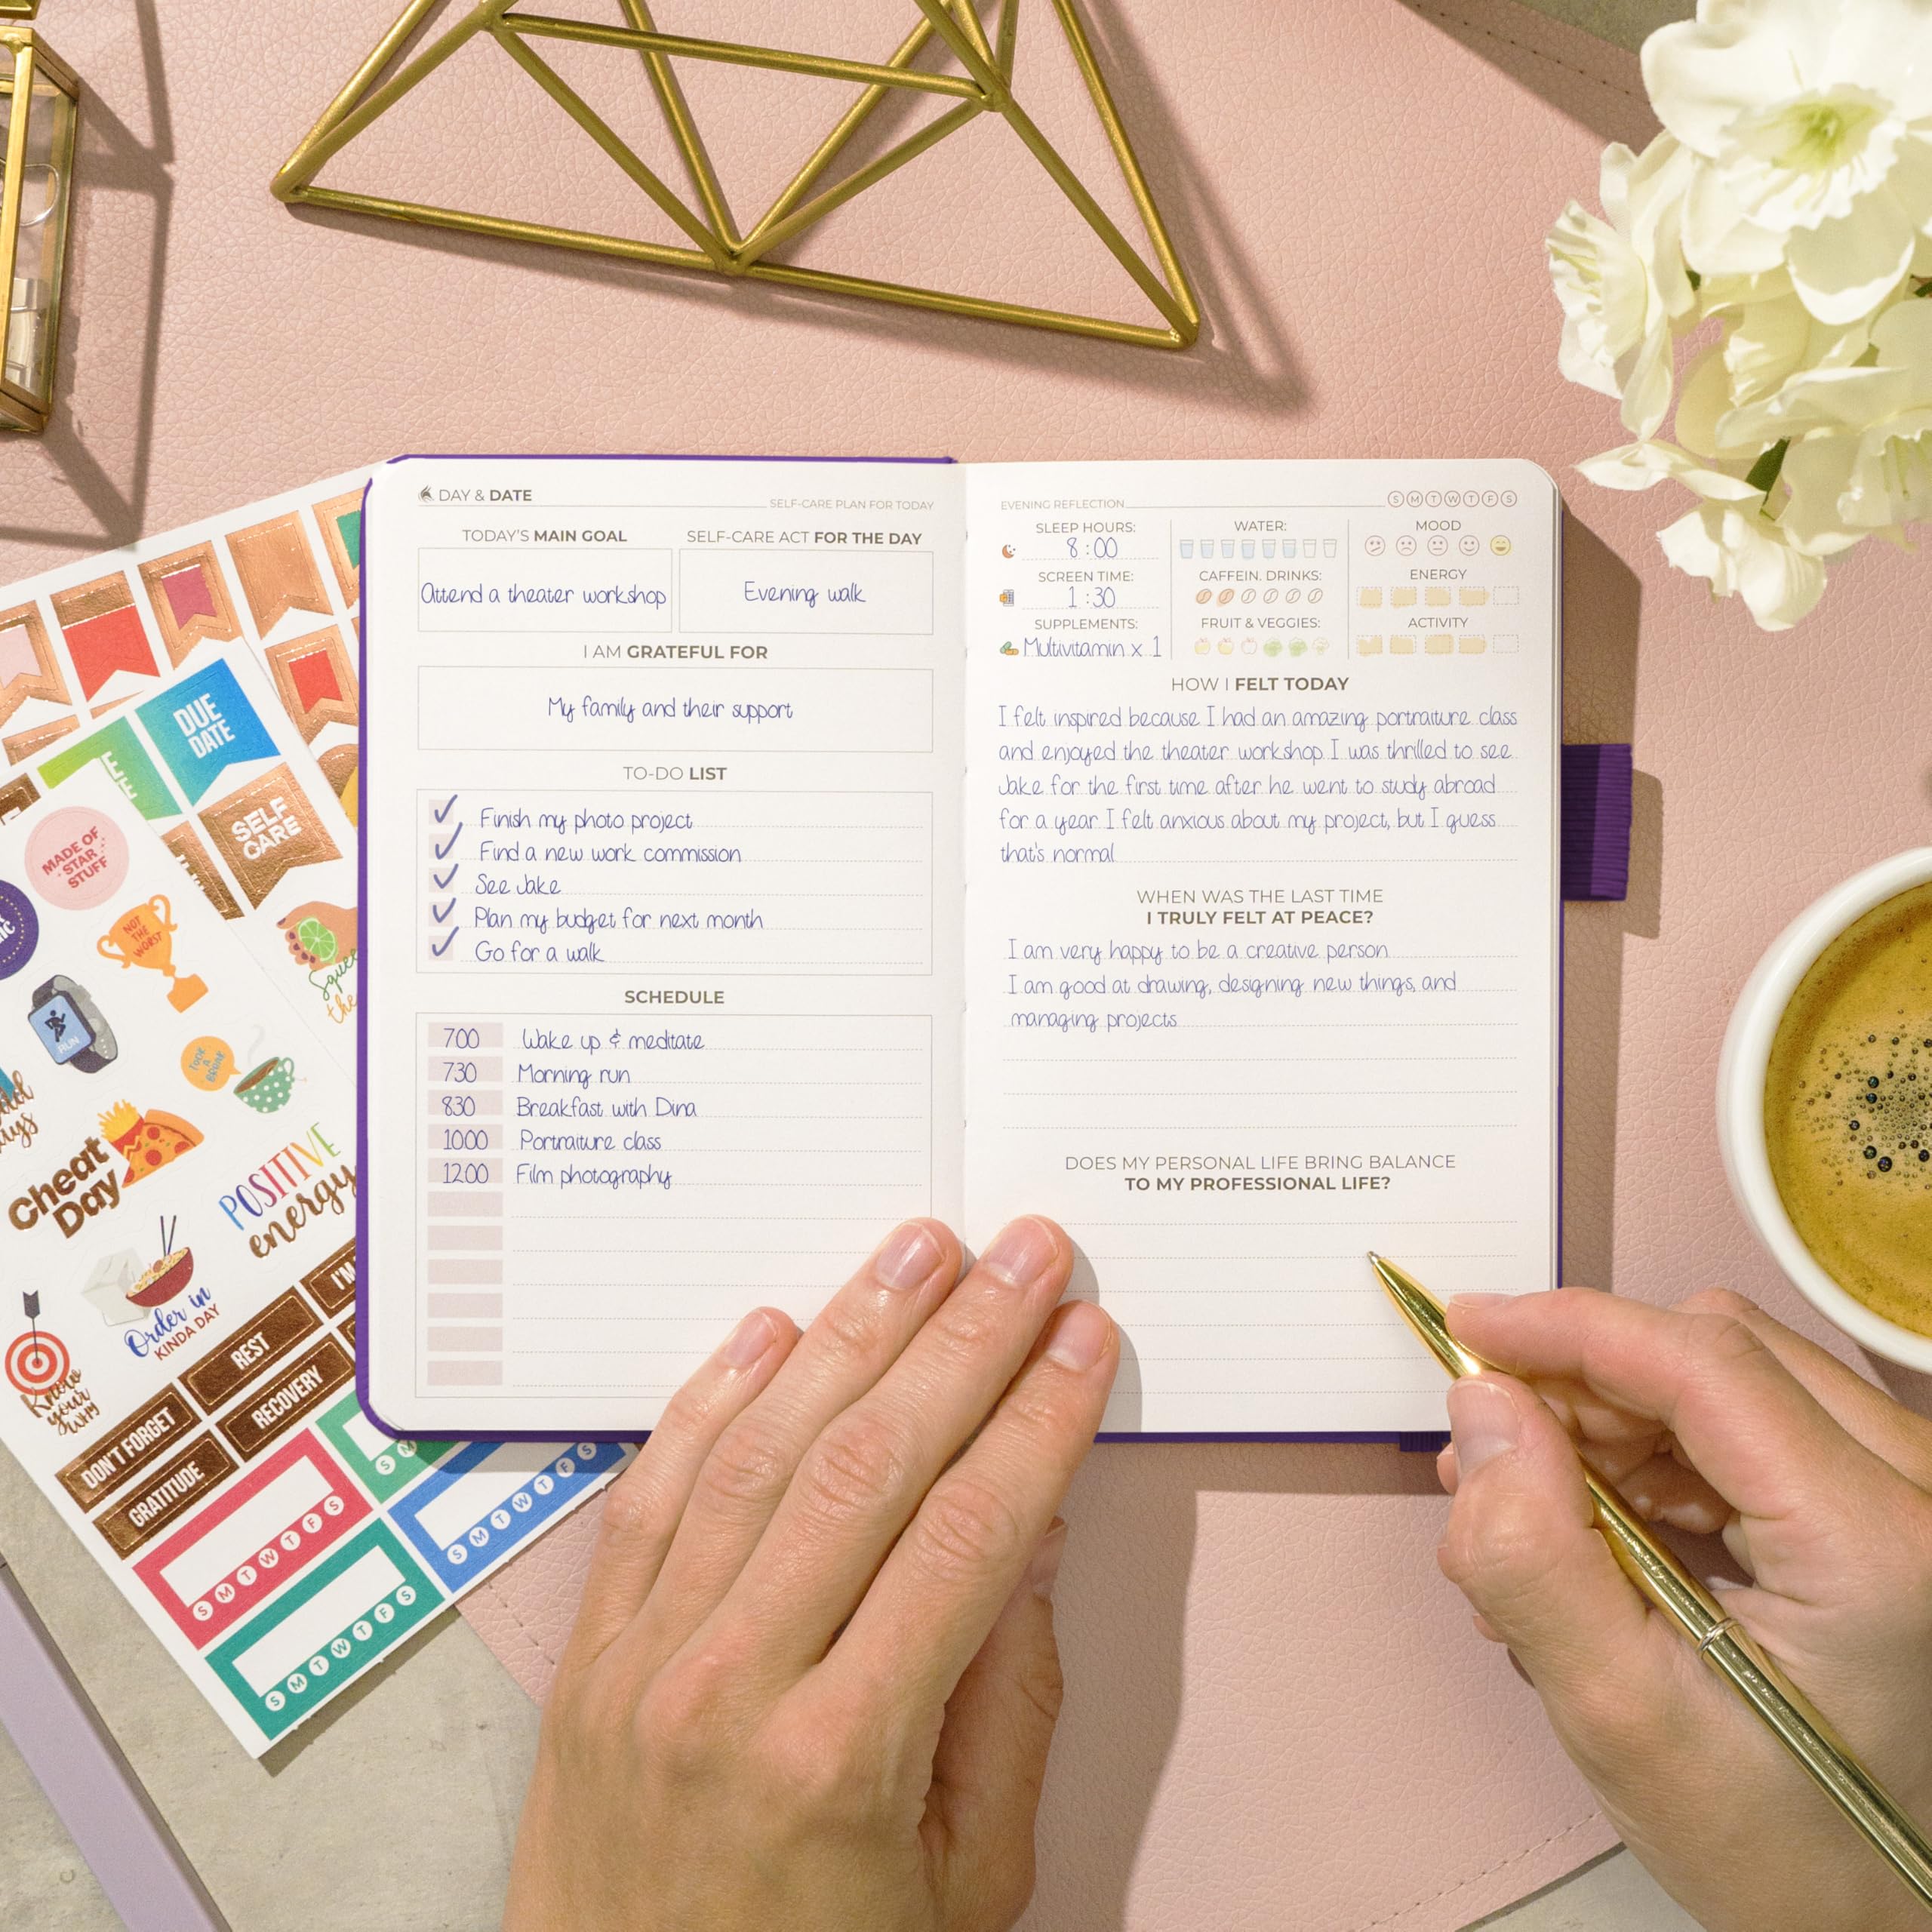 DAY & DATE
SELF-CARE PLAN FOR TODAY
TODAY'S MAIN GOAL
Attend a theater workshop
SELF-CARE ACT FOR THE DAY
Evening walk
I AM GRATEFUL FOR
My family and their support
TO-DO LIST
Finish my photo project
Find a new work commission
See Jake
Plan my budget for next month
Go for a walk
SCHEDULE
7:00 Wake up & meditate
7:30 Morning run
8:30 Breakfast with Dina
10:00 Portraiture class
12:00 Film photography
EVENING REFLECTION
S M T W T F S
SLEEP HOURS:
8:00
SCREEN TIME:
1:30
SUPPLEMENTS:
Multivitamin x 1
WATER:
CAFFEIN. DRINKS:
FRUIT & VEGGIES:
MOOD
ENERGY
ACTIVITY
HOW I FELT TODAY
I felt inspired because I had an amazing portraiture class
and enjoyed the theater workshop. I was thrilled to see
Jake for the first time after he went to study abroad
for a year. I felt anxious about my project, but I guess
that's normal
WHEN WAS THE LAST TIME
I TRULY FELT AT PEACE?
I am very happy to be a creative person
I am good at drawing, designing new things, and
managing projects
DOES MY PERSONAL LIFE BRING BALANCE
TO MY PROFESSIONAL LIFE?
DUE
DATE
SELF
CARE
MADE OF
STAR
STUFF
NOT
THE
WORST
RUN
TAKE
A
BREAK
Cheat
Day
POSITIVE
energy
Order in
KINDA DAY
Know
your
WHY
REST
I'M
DON'T FORGET
RECOVERY
GRATITUDE
S M T W T F S
S M T W T F S
S M T W T F S